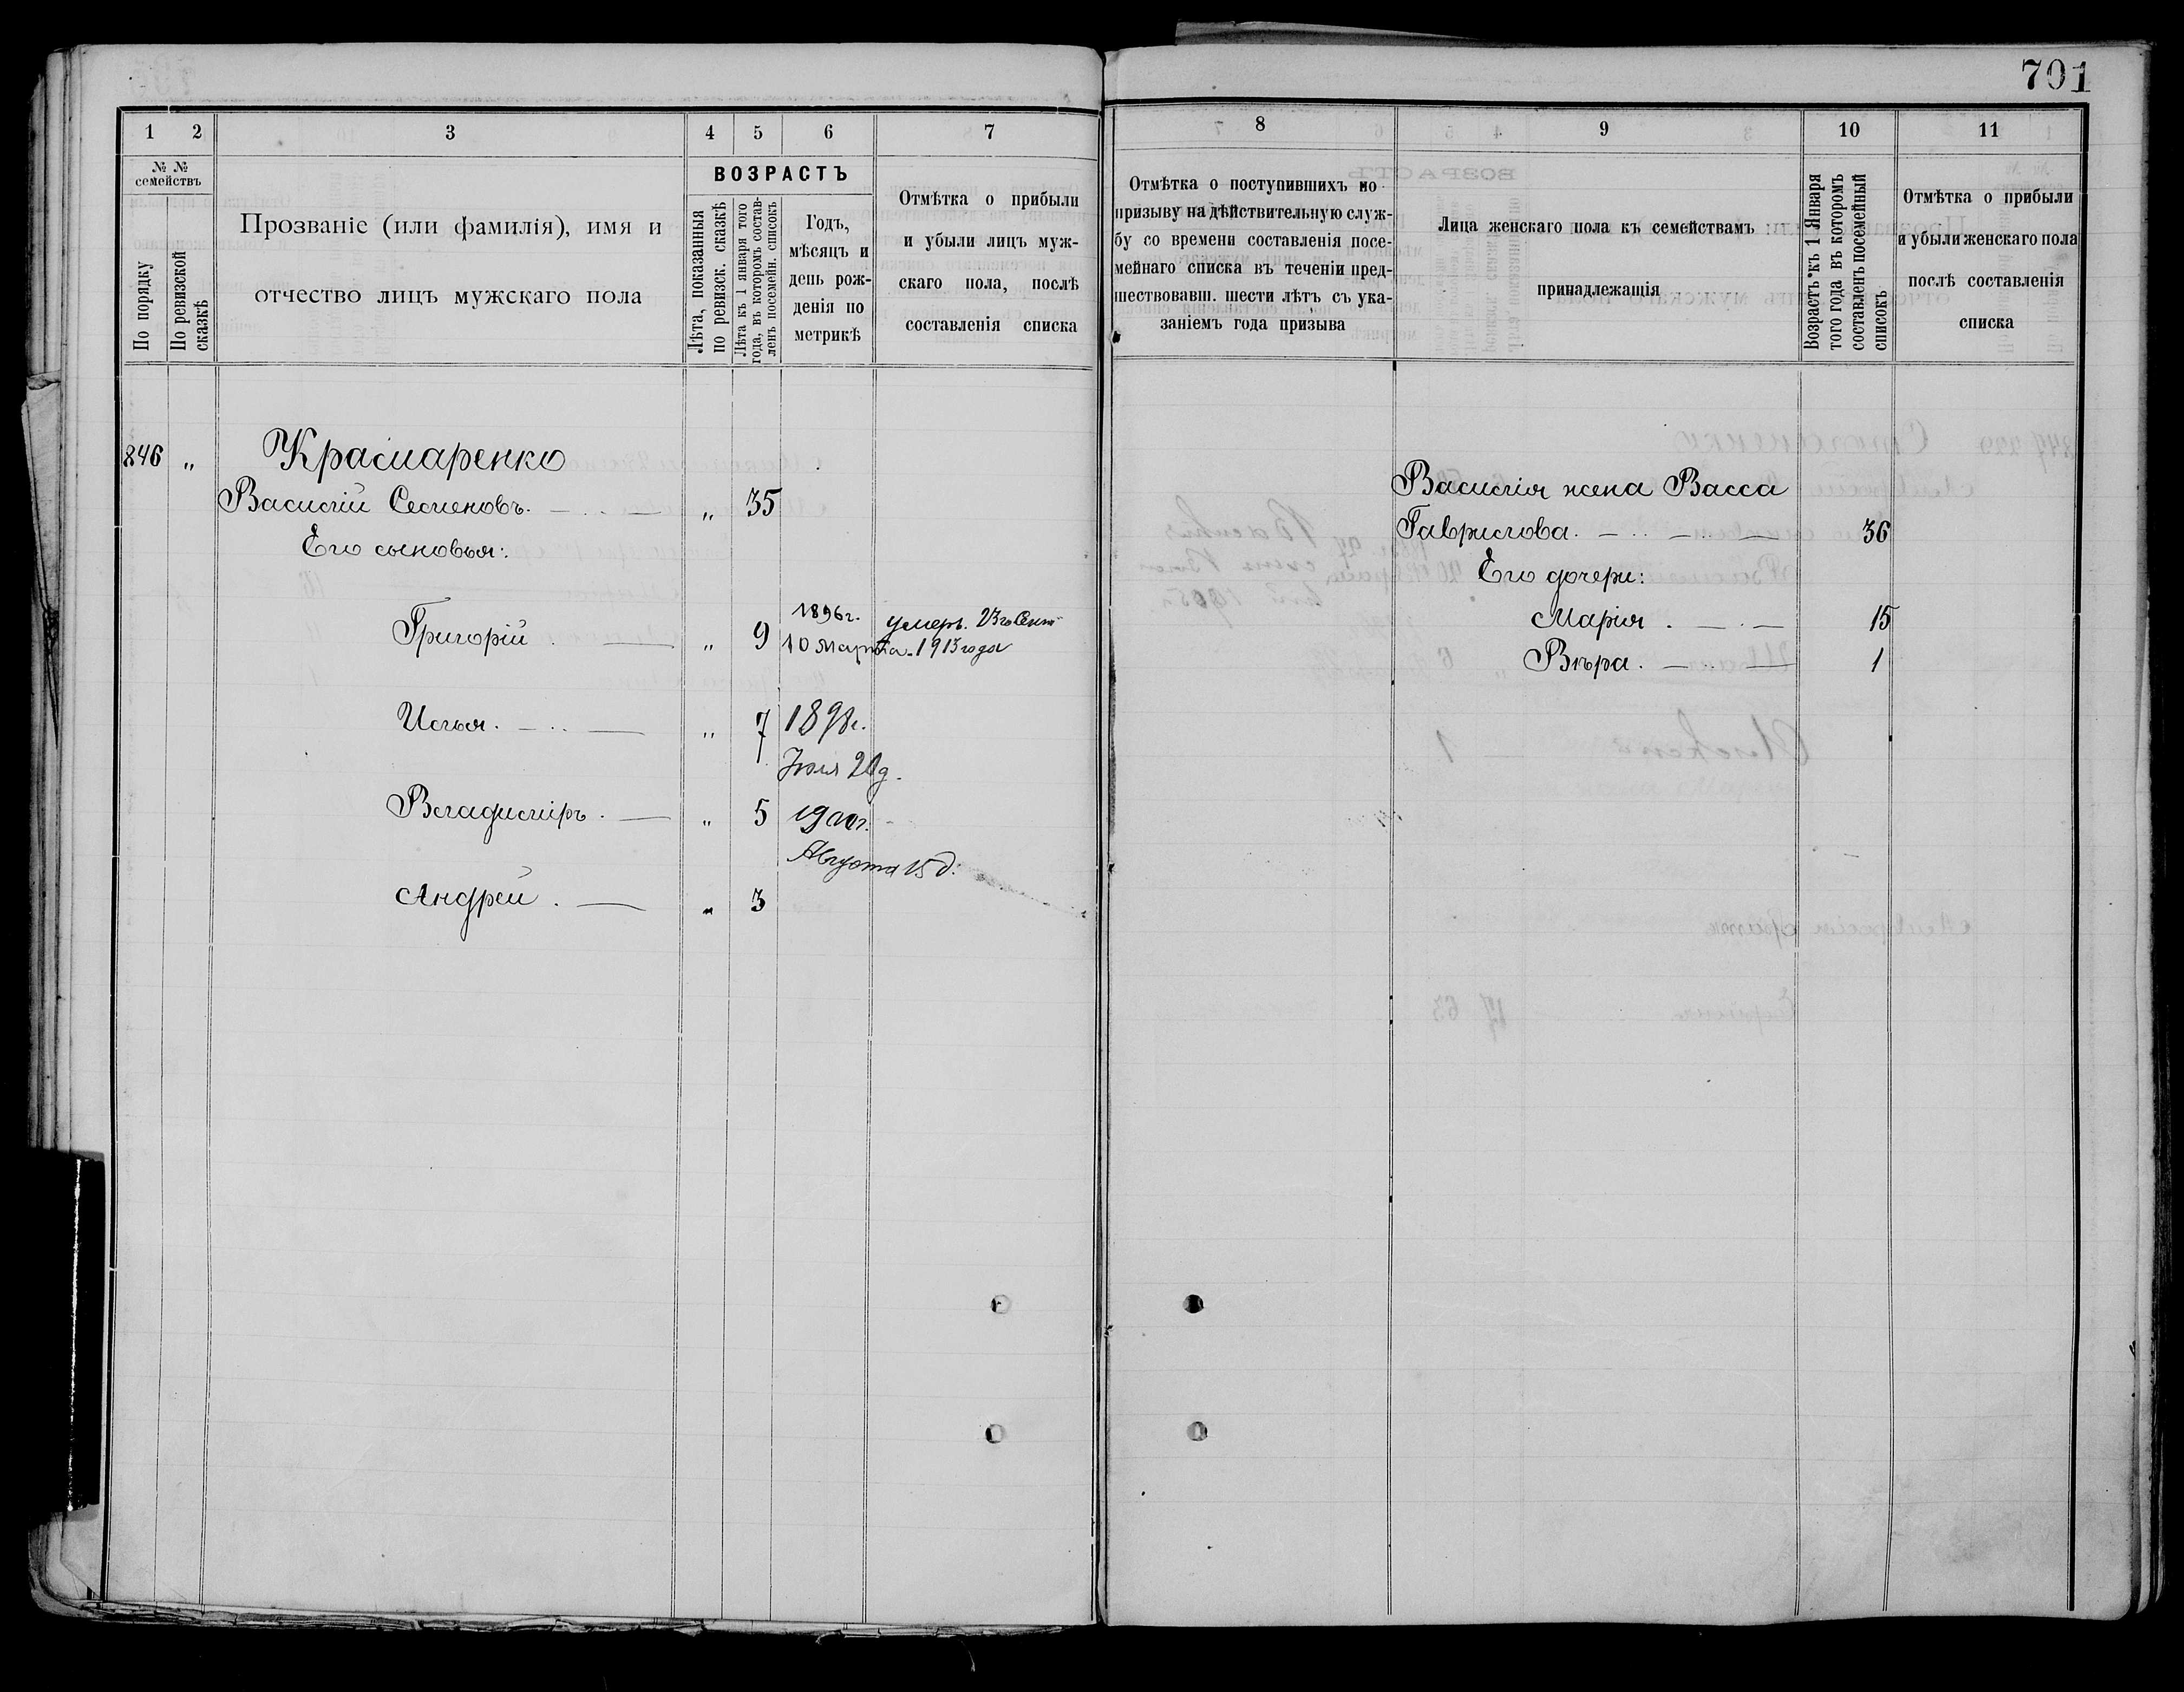 701
1 2 3 4 5 6 7
№ № семействъ
По порядку
По ревизской сказкѣ
Прозваніе (или фамилія), имя и
отчество лицъ мужскаго пола
ВОЗРАСТЪ
Лѣта, показанныя по ревизск. сказкѣ
Лѣта къ 1 января того года, въ которомъ составленъ посемейн. списокъ
Годъ,
мѣсяцъ и
день рож-
денія по
метрикѣ
Отмѣтка о прибыли
и убыли лицъ муж-
скаго пола, послѣ
составленія списка
846 „ Красмаренко
Василій Семеновъ. „ 35
Его сыновья:
Григорій . „ 9 1896г. умеръ. 23го Сент
10 Марта. 1913 года
Илья. „ 7 1898г.
Іюля 20 д.
Владиміръ. „ 5 1900г.
Августа 15 д.
Андрей . „ 3
8 9 10 11
Отмѣтка о поступившихъ по
призыву на дѣйствительную служ-
бу со времени составленія посе-
мейнаго списка въ теченіи пред-
шествовавш. шести лѣтъ съ ука-
заніемъ года призыва
Лица женскаго пола къ семействамъ
принадлежащія
Возрастъ къ 1 Января
того года въ которомъ
составленъ посемейный
списокъ
Отмѣтка о прибыли
и убыли женскаго пола
послѣ составленія
списка
Василія жена Васса
Гаврилова. 36
Его дочери:
Марія . 15
Вѣра. 1